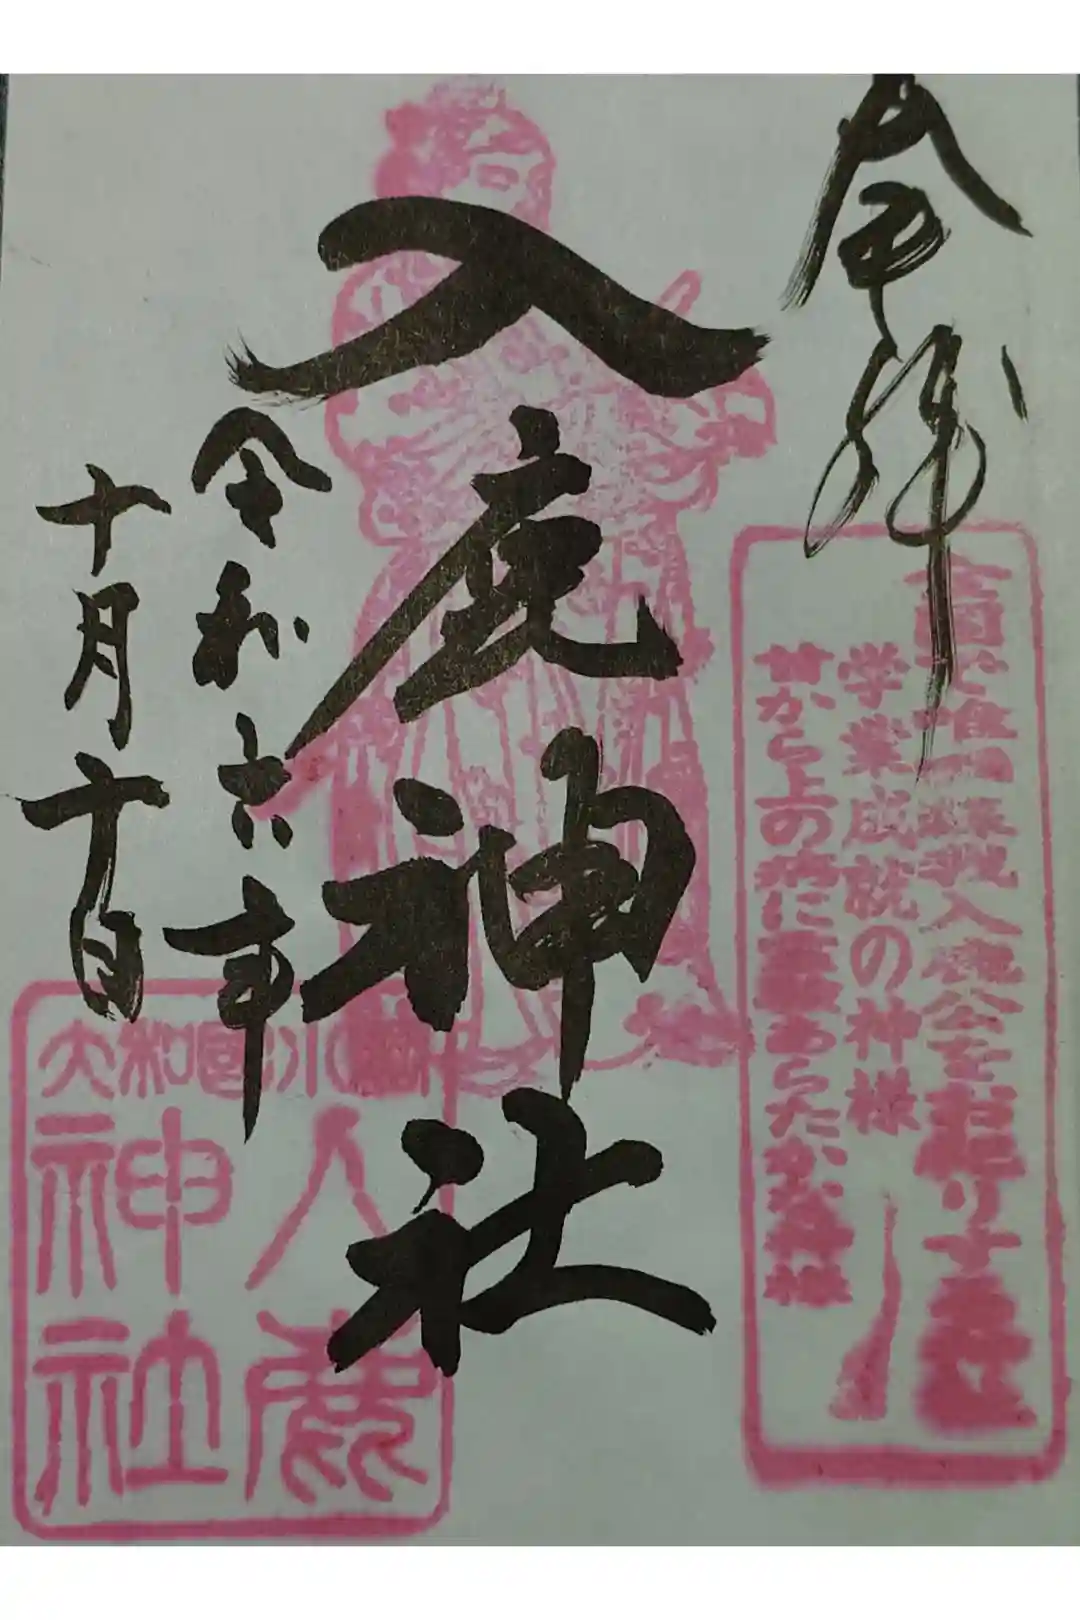 奉拝
全国で唯一蘇我入鹿公をお祀りする神社
学業成就の神様
首から上の病に霊験あらたかな神様
入鹿神社
令和六年
十月十日
大和國小綱
入鹿
神社